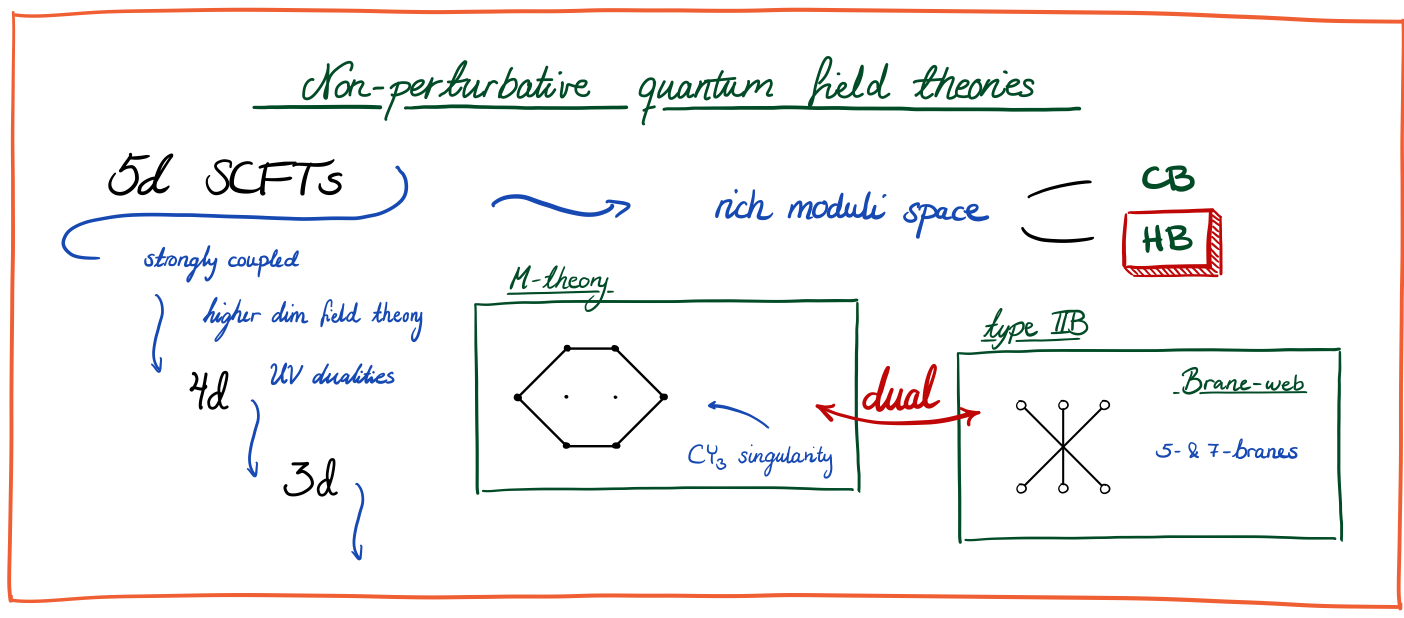 Non-perturbative quantum field theories
5d SCFTs
rich moduli space
CB
HB
strongly coupled
higher dim field theory
UV dualities
4d
3d
M-theory
CY₃ singularity
dual
type IIB
Brane-web
5- & 7-branes